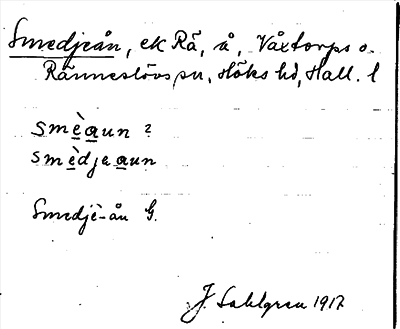 Smedjeån, ek Rä, å, Våxtorps o.
Ränneslövs sn, Höks hd, Hall. l
smèaun 2
smèdjeaun
Smedjè-ån G.
J. Sahlgren 1917